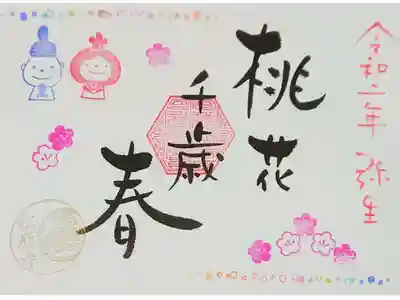 令和二年 弥生
桃花
千歳
春